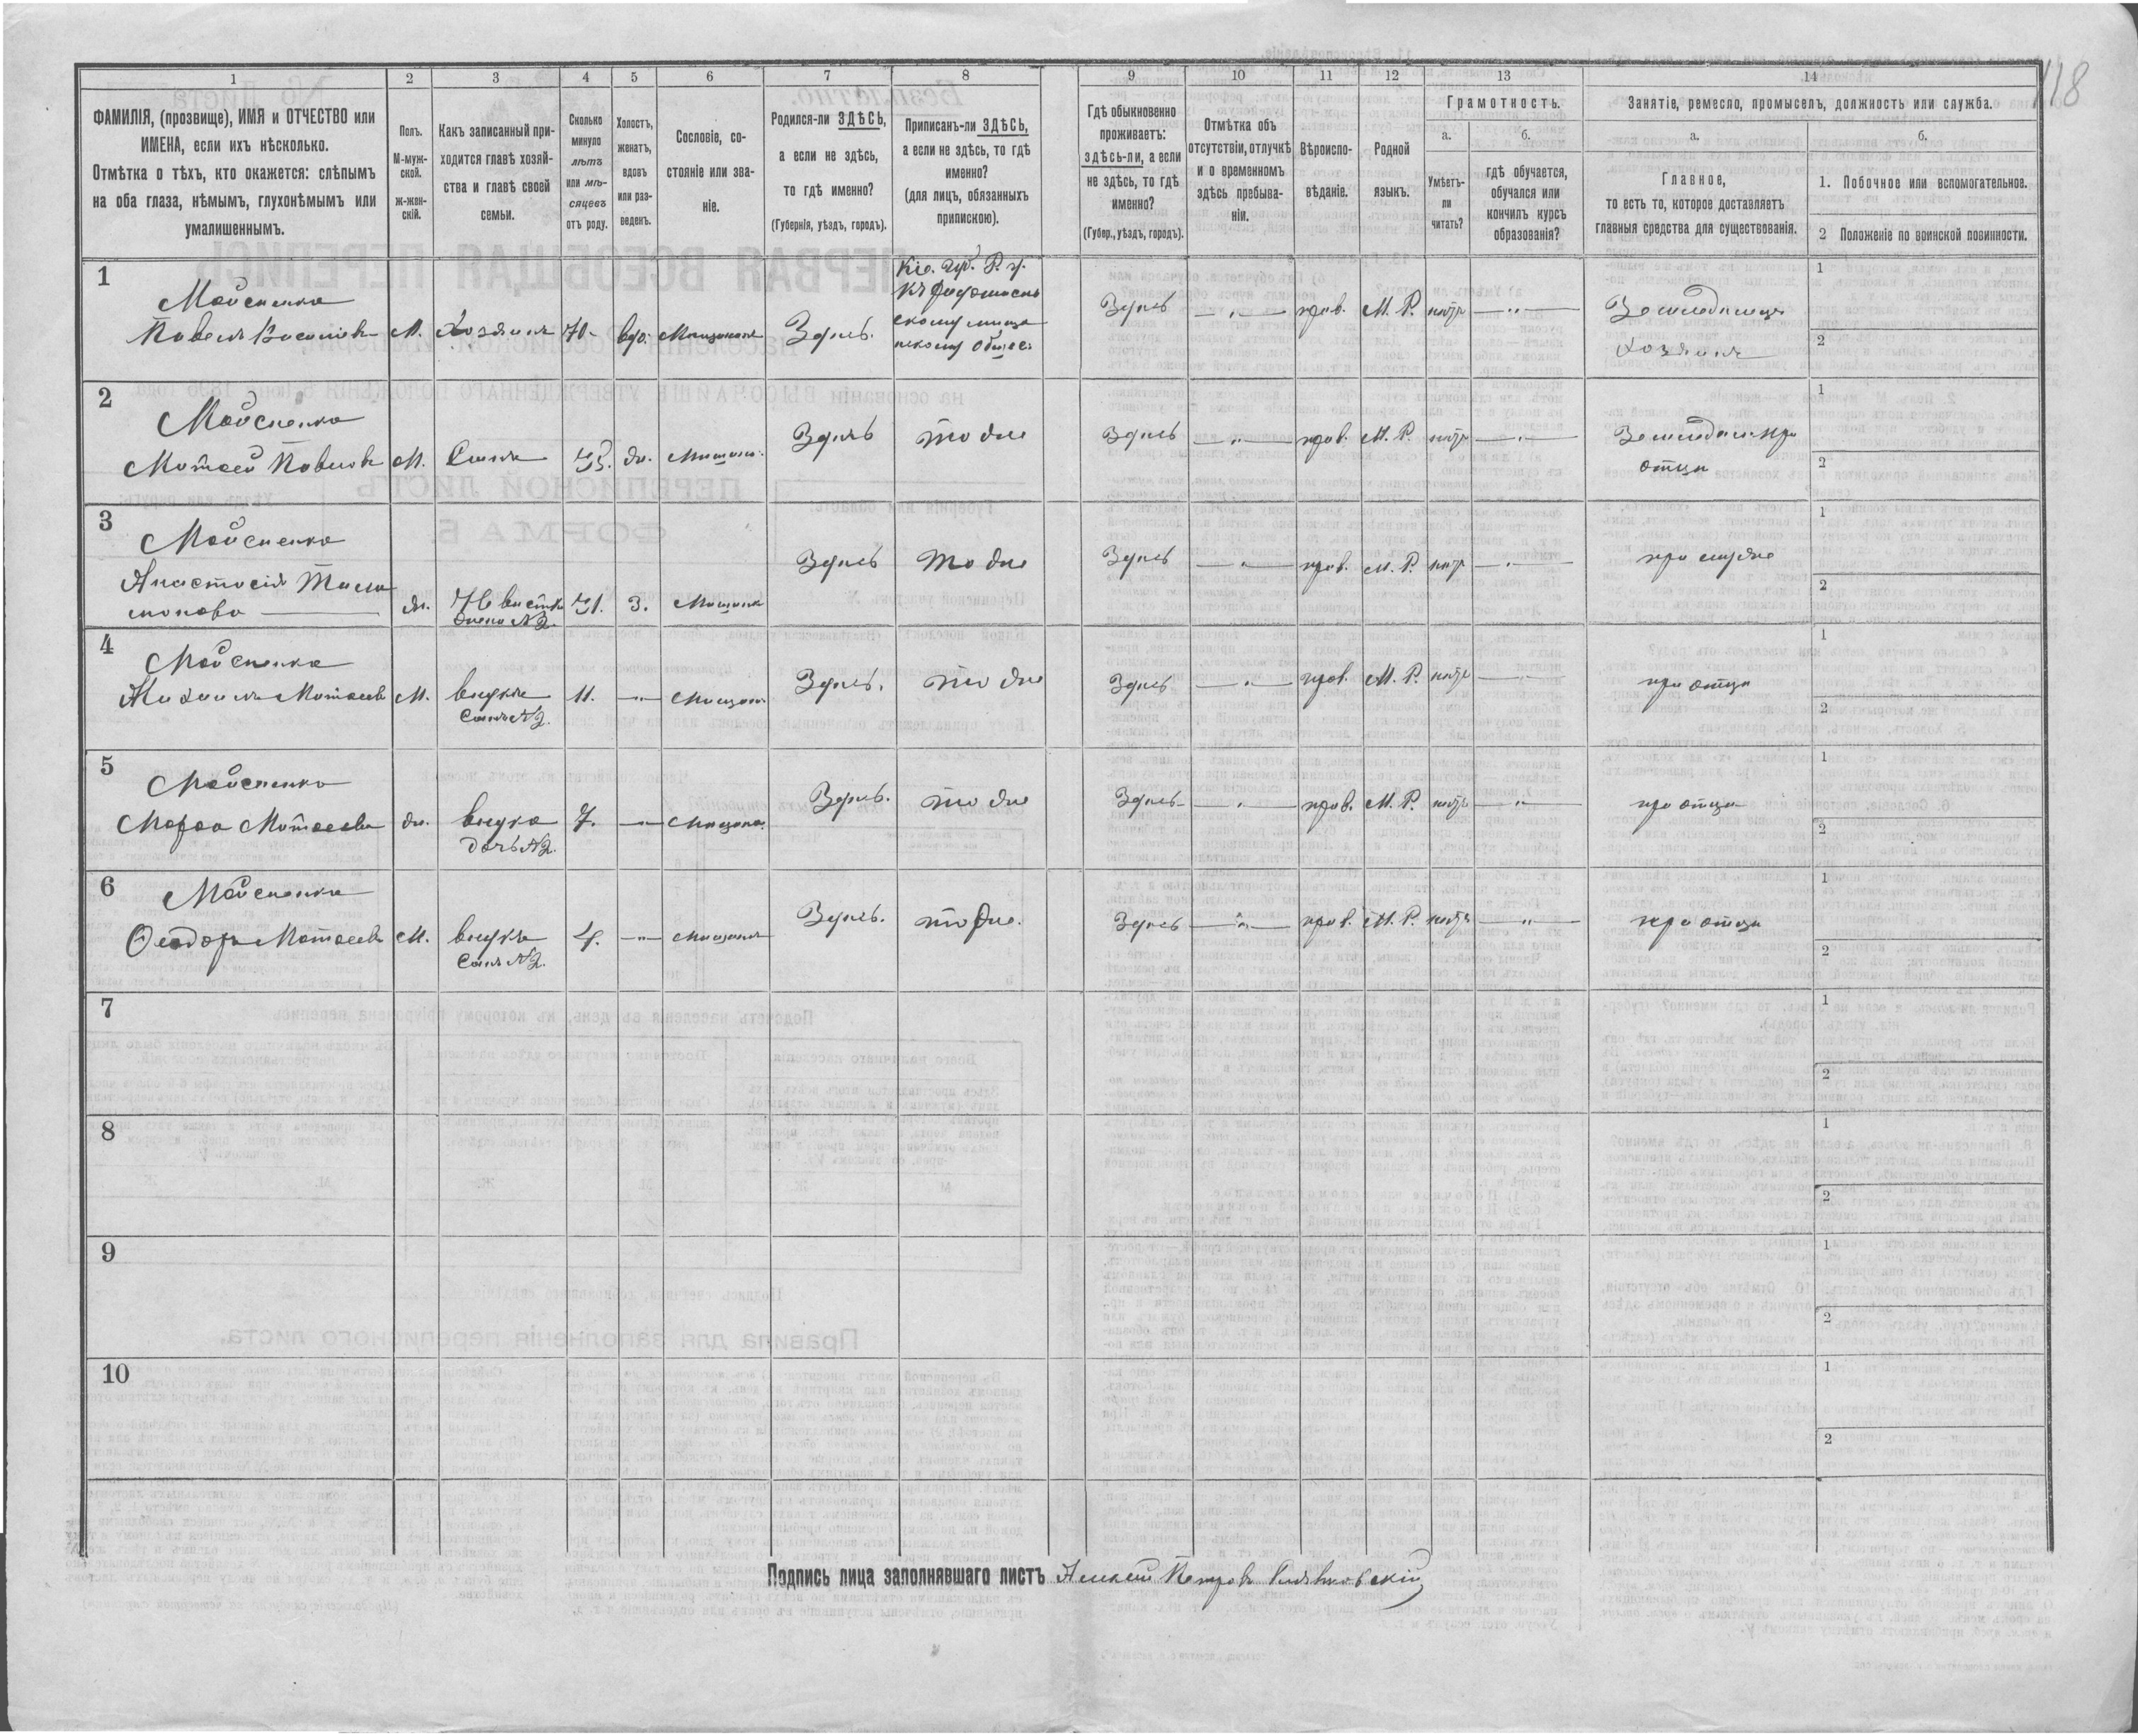 118
1 2 3 4 5 6 7 8 9 10 11 12 13 14
ФАМИЛІЯ, (прозвище), ИМЯ и ОТЧЕСТВО или
ИМЕНА, если ихъ нѣсколько.
Отмѣтка о тѣхъ, кто окажется: слѣпымъ
на оба глаза, нѣмымъ, глухонѣмымъ или
умалишеннымъ.
Полъ.
М-муж-
ской.
ж-жен-
скій.
Какъ записанный при-
ходится главѣ хозяй-
ства и главѣ своей
семьи.
Сколько
минуло
лѣтъ
или мѣ-
сяцевъ
отъ роду.
Холостъ,
женатъ,
вдовъ
или раз-
веденъ.
Сословіе, со-
стояніе или зва-
ніе.
Родился-ли ЗДѢСЬ,
а если не здѣсь,
то гдѣ именно?
(Губернія, уѣздъ, городъ).
Приписанъ-ли ЗДѢСЬ,
а если не здѣсь, то гдѣ
именно?
(для лицъ, обязанныхъ
припискою).
Гдѣ обыкновенно
проживаетъ:
здѣсь-ли, а если
не здѣсь, то гдѣ
именно?
(Губер., уѣздъ, городъ).
Отмѣтка объ
отсутствіи, отлучкѣ
и о временномъ
здѣсь пребыва-
ніи.
Вѣроиспо-
вѣданіе.
Родной
языкъ.
Грамотность.
а.
Умѣетъ-
ли
читать?
б.
гдѣ обучается,
обучался или
кончилъ курсъ
образованія?
Занятіе, ремесло, промыселъ, должность или служба.
а.
Главное,
то есть то, которое доставляетъ
главныя средства для существованія.
б.
1. Побочное или вспомогательное.
2 Положеніе по воинской повинности.
1
Мойсеенко
Павелъ М. Хозяинъ 70. вдо. Мещанинъ Здѣсь.
Кіе. губ. Р. у.
Здѣсь — " — прав. М. Р. нѣтъ — " —
Земледѣлецъ
Хозяинъ
1
2
2
Мойсеенко
Матвей Павловъ М. Сынъ 45. Мещан. Здѣсь тоже
Здѣсь — " — прав. М. Р. нѣтъ — " —
Земледѣл. при
отцѣ
1
2
3
Мойсеенко
Анастасія
ж. Невѣстка 41. З. Мещанка Здѣсь тоже
жена №2.
Здѣсь — " — прав. М. Р. нѣтъ — " —
при мужѣ
1
2
4
Мойсеенко
Михаилъ Матвеевъ М. внукъ 11. — " — Мещан. Здѣсь. тоже
Сынъ №2.
Здѣсь — " — прав. М. Р. нѣтъ — " —
при отцѣ
1
2
5
Мойсеенко
Марфа Матвеева ж. внука 7. — " — Мещанка. Здѣсь. тоже
дочь №2.
Здѣсь — " — прав. М. Р. нѣтъ — " —
при отцѣ
1
2
6
Мойсеенко
Ѳеодоръ Матвеевъ М. внукъ 4. — " — Мещанинъ Здѣсь. тоже.
Сынъ №2.
Здѣсь — " — прав. М. Р. нѣтъ — " —
при отцѣ
1
2
7
1
2
8
1
2
9
1
2
10
1
2
Подпись лица заполнявшаго листъ Алексей Петровъ